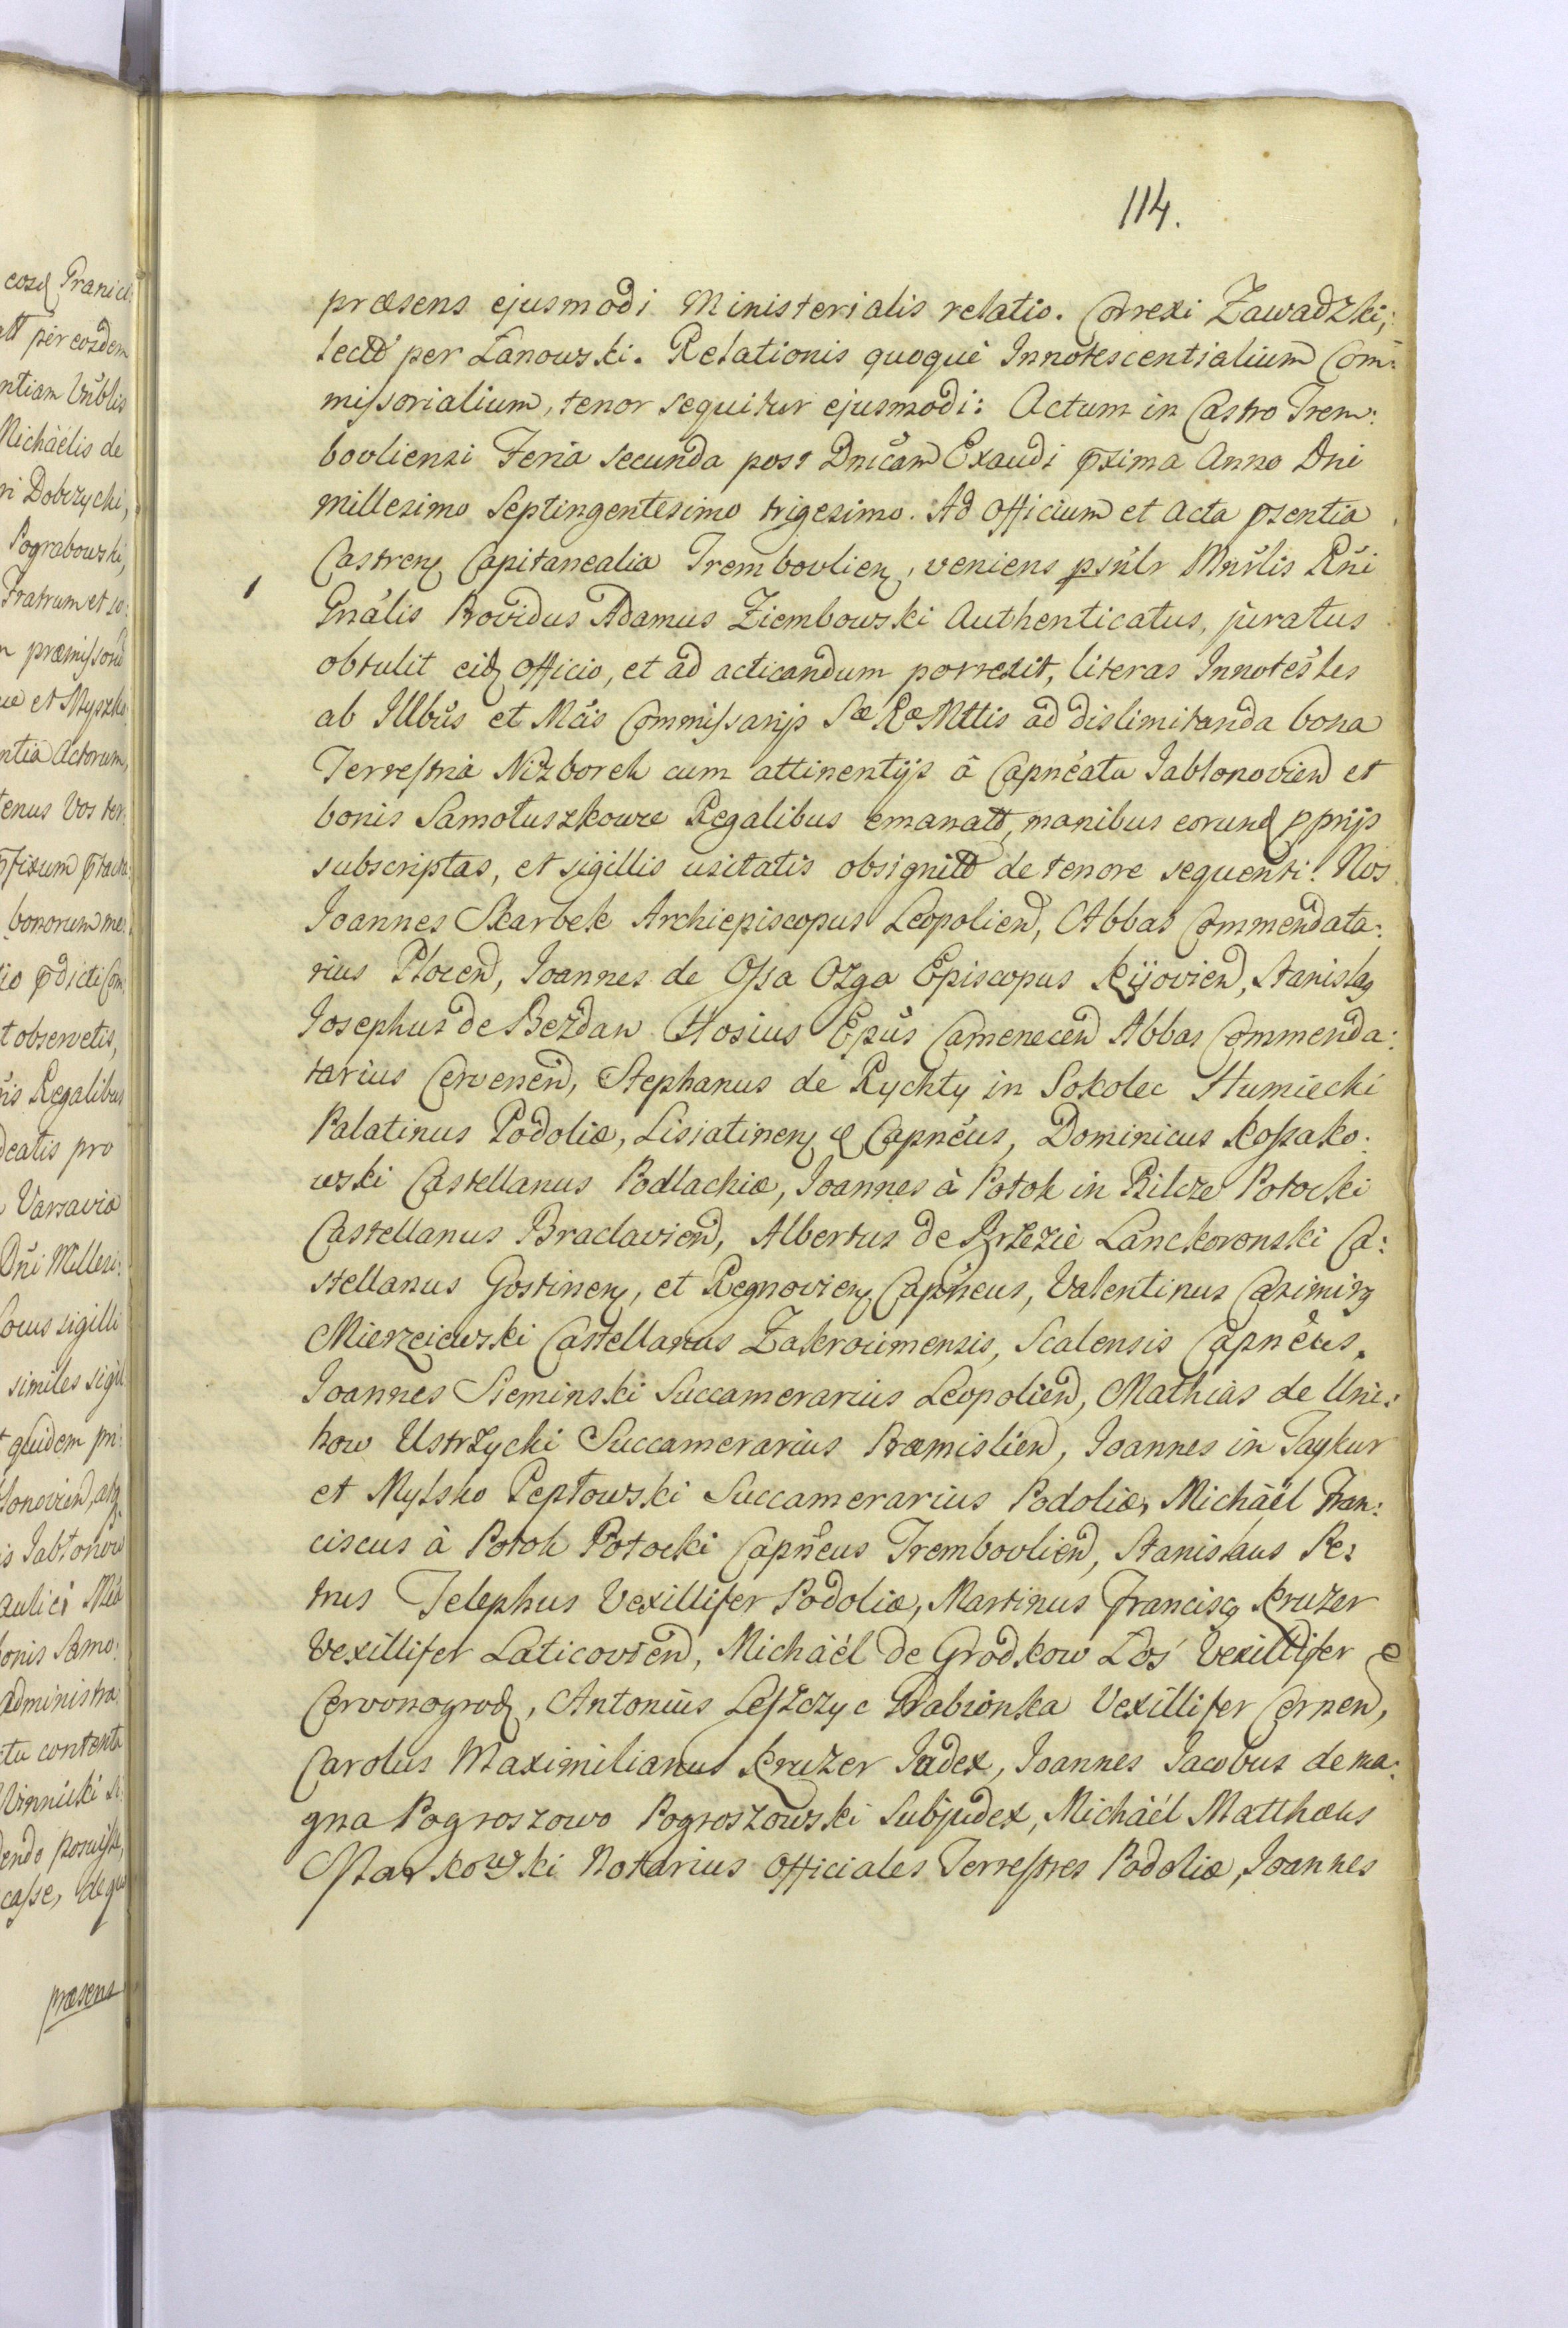 114.
præsens ejusmodi Ministerialis relatio. Correxi Zawadzki;
lectt per Łanowski. Relationis quoque Innotescentialium Com:
missorialium, tenor sequitur ejusmodi: Actum in Castro Trem:
bovliensi Feria secunda post Dnicam Exaudi pxima Anno Dni
millesimo Septingentesimo trigesimo. Ad Officium et Acta psentia
Castren Capitanealia Trembovlien, veniens psnlr Mnrlis Rni
Gnalis Providus Adamus Ziembowski Authenticatus, juratus
obtulit eid Officio, et ad acticandum porrexit, literas Innotesles
ab Illbus et Mcis Commissarijs Sæ Ræ Mttis ad dislimitanda bona
Terrestria Nizborek cum attinentijs à Capneatu Jablonovien et
bonis Samołuszkowce Regalibus emanatt, manibus eorund pprijs
subscriptas, et sigillis usitatis obsignitt de tenore sequenti: Nos
Joannes Skarbek Archiepiscopus Leopolien, Abbas Commendata:
rius Plocen, Joannes de Ossa Ozga Episcopus Kijovien, Stanislaq
Josephus de Bezdan Hosius Epus Camenecen Abbas Commenda:
tarius Cervenen, Stephanus de Rychty in Sokolec Humiecki
Palatinus Podoliæ, Lisiatinen & Capneus, Dominicus Kossako:
wski Castellanus Podlachiæ, Joannes à Potok in Bilcze Potocki
Castellanus Braclavien, Albertus de Brzezie Lanckoronski Ca:
stellanus Gostinen, et Regnovien Capneus, Valentinus Casimirq
Mierzeiewski Castellanus Zakrocimensis, Scalensis Capneus,
Joannes Sieminski Succamerarius Leopolien, Mathias de Uni:
how Ustrzycki Succamerarius Præmislien, Joannes in Taykur
et Mylsko Pepłowski Succamerarius Podoliæ, Michäel Fran:
ciscus à Potok Potocki Capneus Trembovlien, Stanislaus Pe:
trus Telephus Vexillifer Podoliæ, Martinus Franciscq Kruzer
Vexillifer Laticovien, Michäél de Grodkow Łoś Vexillifer
Cervonogrod, Antonius Leszczyc Grabionka Vexillifer Cernen,
Carolus Maximilianus Kruzer Judex, Joannes Jacobus de ma:
gna Pogroszowo Pogroszowski Subjudex, Michäél Matthæus
Markowski Notarius Officiales Terrestres Podoliæ, Joannes
per eosdem
Nichäélis de
Dobrzycki,
Pograbowski,
Fratrum et
et Myszko
Actorum,
bonorum
observetis,
Regalibus
pro
Varsaviæ
Dni Millesi:
Locus sigilli
similes
quidem
aulici
bonis Samo:
contenta
posuisse,
præsens